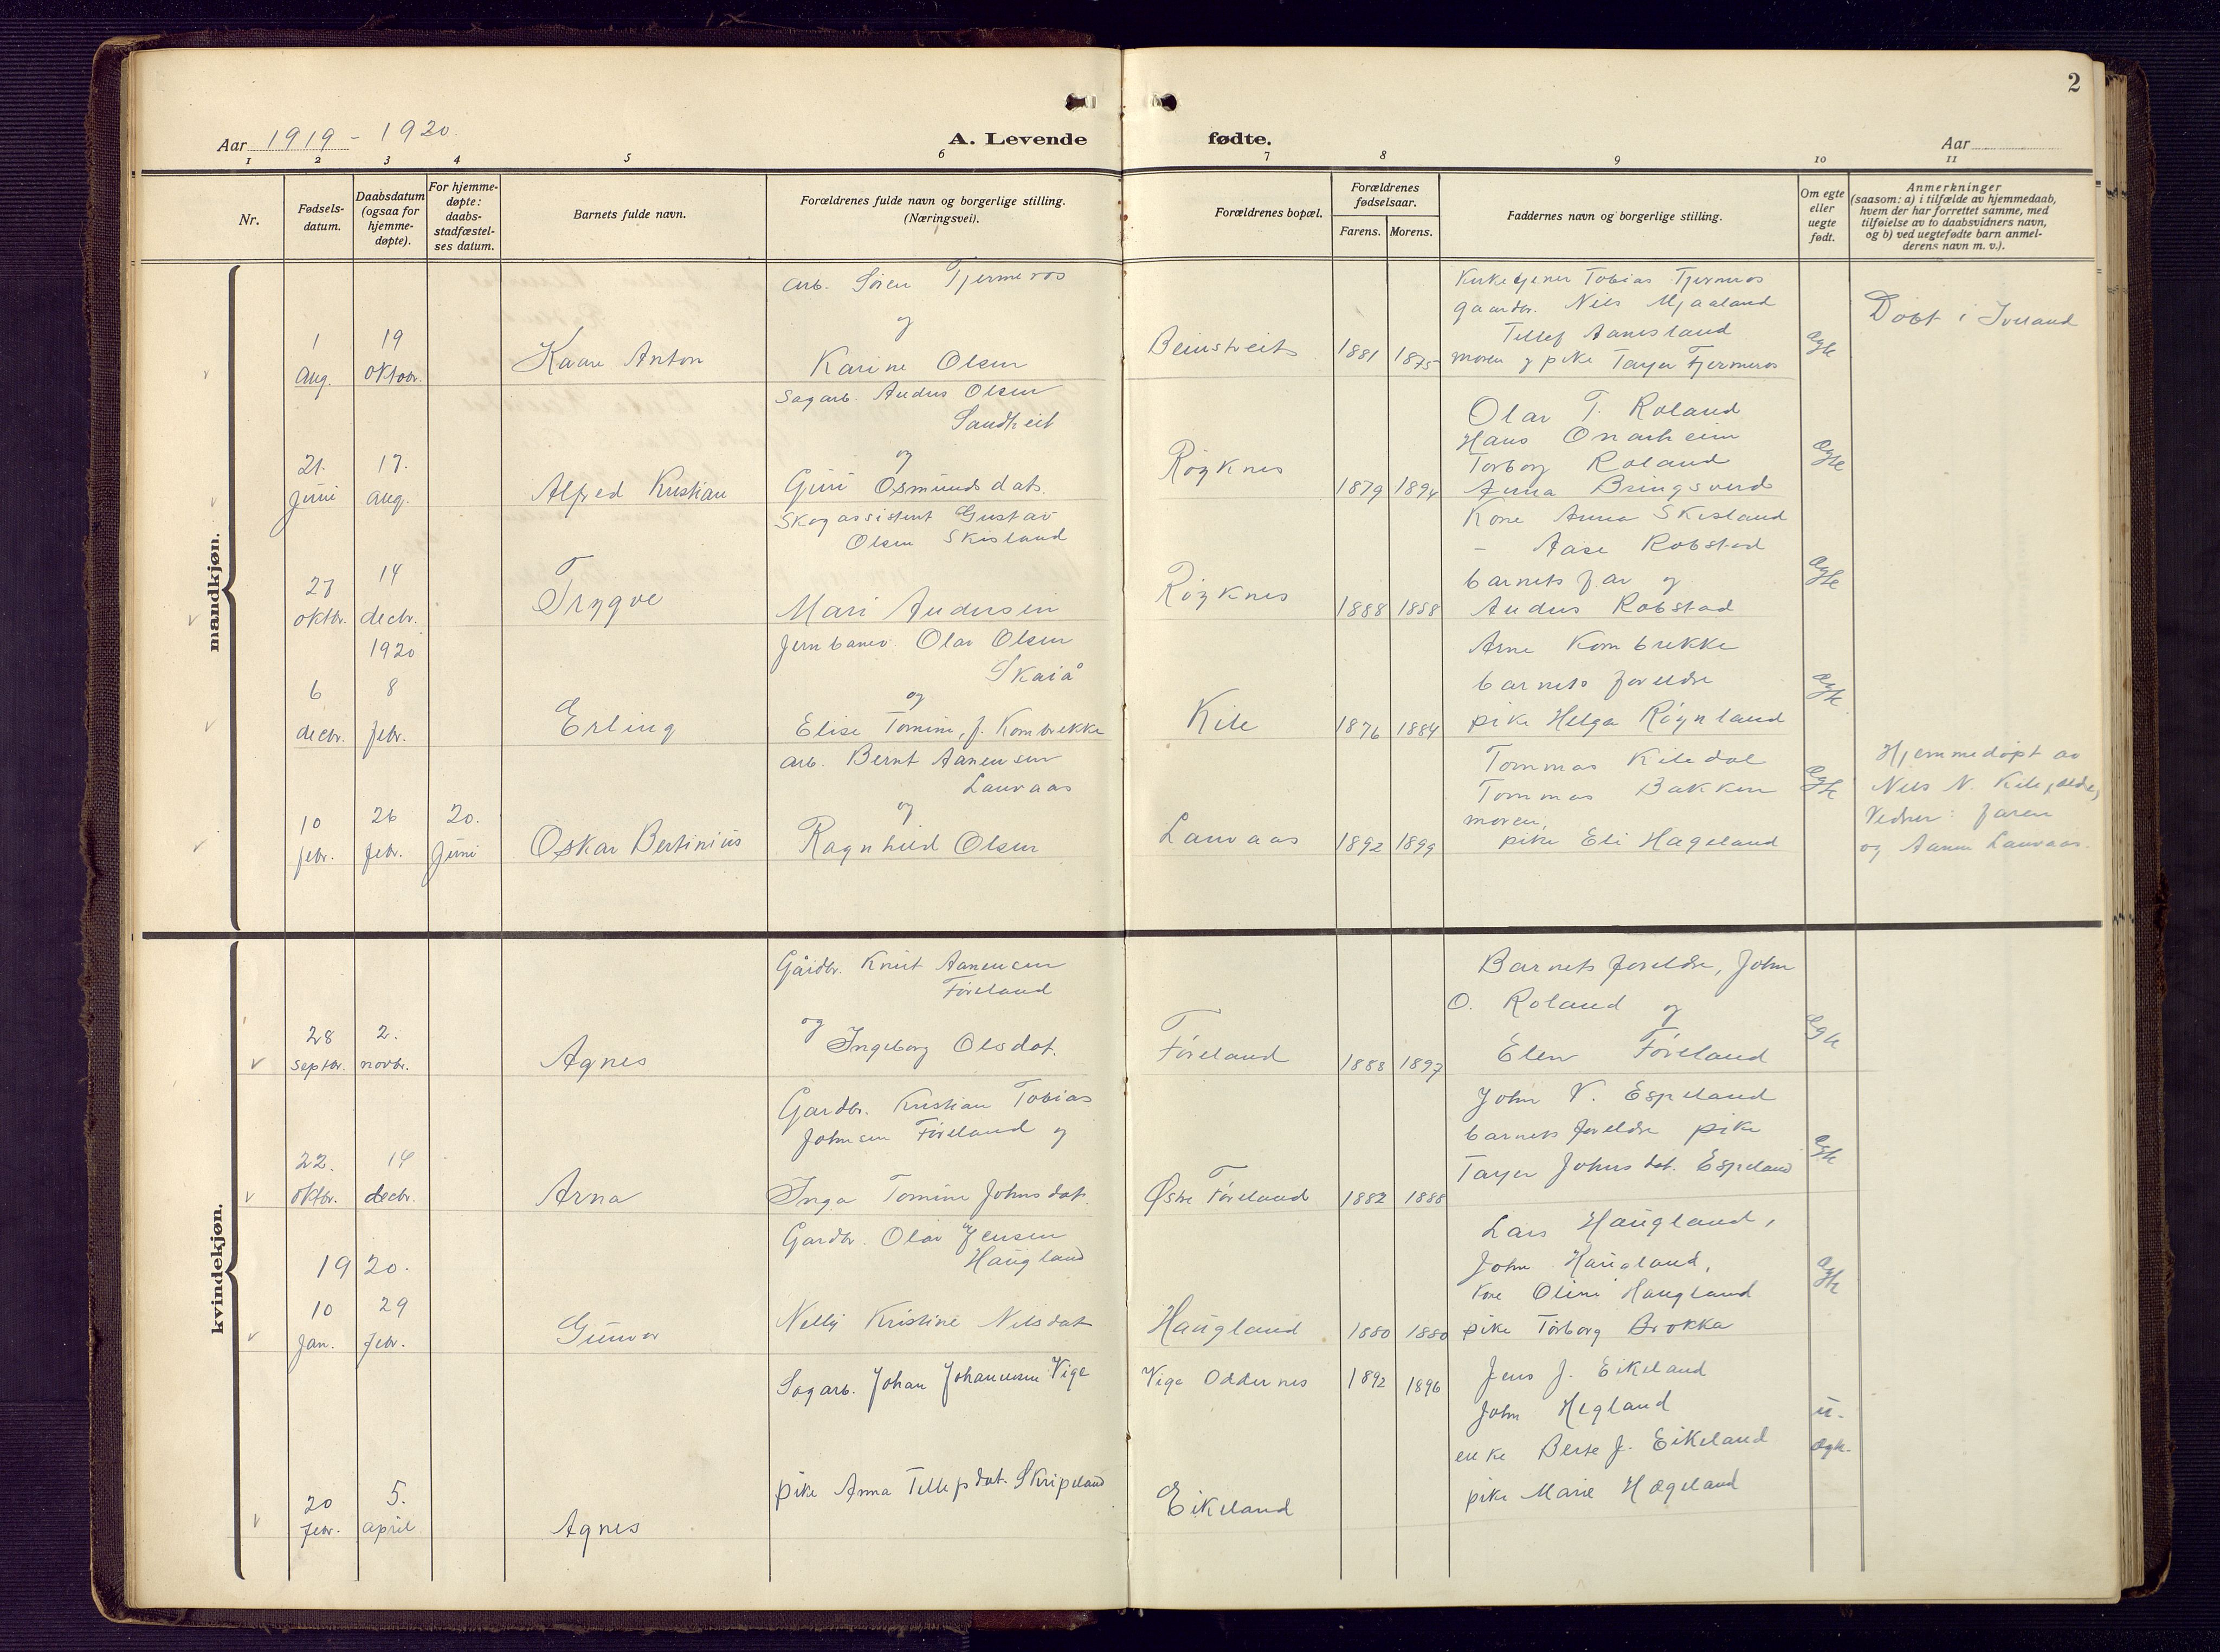 2
Aar 1919 - 1920.
A. Levende fødte.
Aar
1 2 3 4 5 6 7 8 9 10 11
Nr.
Fødsels-
datum.
Daabsdatum
(ogsaa for
hjemme-
døpte).
For hjemme-
døpte:
daabs-
stadfæstel-
ses datum.
Barnets fulde navn.
Forældrenes fulde navn og borgerlige stilling.
(Næringsvei).
Forældrenes bopæl.
Forældrenes
fødselsaar.
Farens. Morens.
Faddernes navn og borgerlige stilling.
Om egte
eller
uegte
født.
Anmerkninger
(saasom: a) i tilfælde av hjemmedaab,
hvem der har forrettet samme, med
tilføielse av to daabsvidners navn,
og b) ved uegtefødte barn anmel-
derens navn m. v.).
mandkjøn.
1
aug.
19
oktbr.
Kaare Anton
arb. Søren Tjermeros
og
Karine Olsen
1881 1875
Kirketjener Tobias Tjermeros
gaardbr. Niels Mjaaland
Tellef Aanesland
moren og pike Tayer Tjermeros
ægte
Døbt i Iveland
21.
juni
17.
aug.
Alfred Kristian
Sagarb. Anders Olsen
og
Guri Osmundsdat.
Røyknes
1879 1894
Olav T. Roland
Hans Onarheim
Torborg Roland
Anna Bringsverd
ægte
27
oktbr.
14
decbr.
Trygve
Skogassistent Gustav
Olsen Skisland
Mari Andersen
Røyknes
1888 1888
Kone Anna Skisland
- Aase Robstad
barnets far og
Anders Robstad
ægte
1920
6
decbr.
8
febr.
Erling
Jernbanev. Olav Olsen
Skaiå
og
Elise Tomine, f. Kombrekke
Kile
1876 1884
Arne Kombrekke
barnets foreldre
pike Helga Røynland
ægte
10
febr.
26
febr.
20.
juni
Oskar Bertinius
arb. Bernt Aanensen
Lauvaas
og
Ragnhild Olsen
Lauvaas
1892 1899
Tommas Kiledal
Tommas Bakken
moren,
pike Eli Hageland
ægte
Hjemmedøpt av
Niels N. Kile
Vidner: faren
og Aanen Lauvaas.
kvindekjøn.
28
septbr.
2.
novbr.
Agnes
Gårdbr. Knut Aanensen
Føreland
og
Ingeborg Olsdat.
Føreland
1888 1897
Barnets foreldre, John
O. Roland og
Elen Føreland
ægte
22.
oktbr.
14
decbr.
Arna
Gardbr. Kristian Tobias
Johnsen Føreland og
Inga Tomine Johnsdat.
Østre Føreland
1882 1888
John V. Espeland
barnets foreldre pike
Tayer Johnsdat. Espeland
ægte
1920.
10
jan.
29
febr.
Gunvor
Gardbr. Olav Jensen
Haugland
Nelly Kristine Nilsdat
Haugland
1880 1880
Lars Haugland,
John Haugland,
kone Oline Haugland
pike Torborg Brokka
ægte
20
febr.
5.
april
Agnes
Sagarb. Johan Johannesen Vige
pike Anna Tellefsdat. Skripeland
Vige Oddernes
Eikeland
1892 1896
Jens J. Eikeland
John Hegland
enke Berte J. Eikeland
pike Marie Hægeland
u-
ægte.